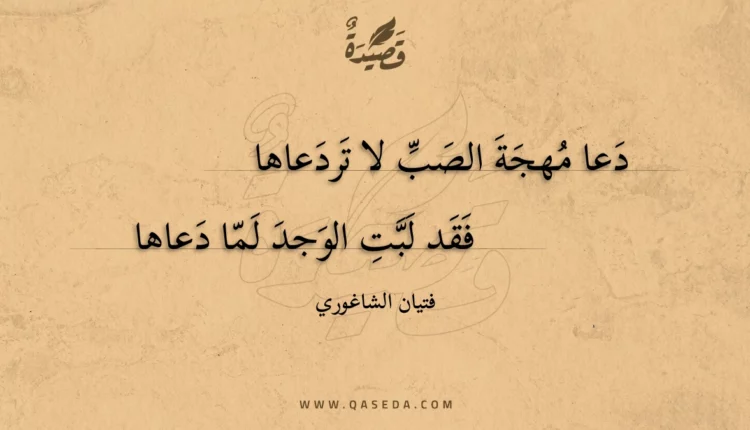 قَصِيْدَةٌ
دَعا مُهجَةَ الصَبِّ لا تَردَعاها
فَقَد لَبَّتِ الوَجدَ لَمّا دَعاها
فتيان الشاغوري
WWW.QASEDA.COM